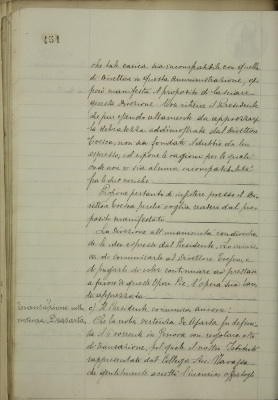 151
che tale carica sia incompatibile con quella
di Direttore in questa Amministrazione, e
però manifesta il proposito di lasciare
questa Direzione. Ora ritiene il Presidente
che pur essendo altamente da apprezzare
la delicatezza addimostrata dal Direttore
non sia fondato il dubbio da lui
espresso, ed espone le ragioni per le quali
crede non vi sia alcuna incompatibilità
fra le due cariche.
Propone pertanto di insistere presso il Di-
rettore perché voglia recedere dal pro-
posito manifestato.
La Direzione all'unanimità condividen-
do le idee espresse dal Presidente, Lo incarica
di comunicarlo al Direttore e
di pregarlo di voler continuare a prestare
a favore di queste Opere Pie l'opera sua tan-
to apprezzata.
Transazione nella
vertenza
c) Il Presidente comunica ancora:
Che la nota vertenza fu definita
il corrente in Genova con regolare atto
di transazione, pel quale il nostro Istituto
rappresentato dal Collega Avv.
che gentilmente accettò l'incarico